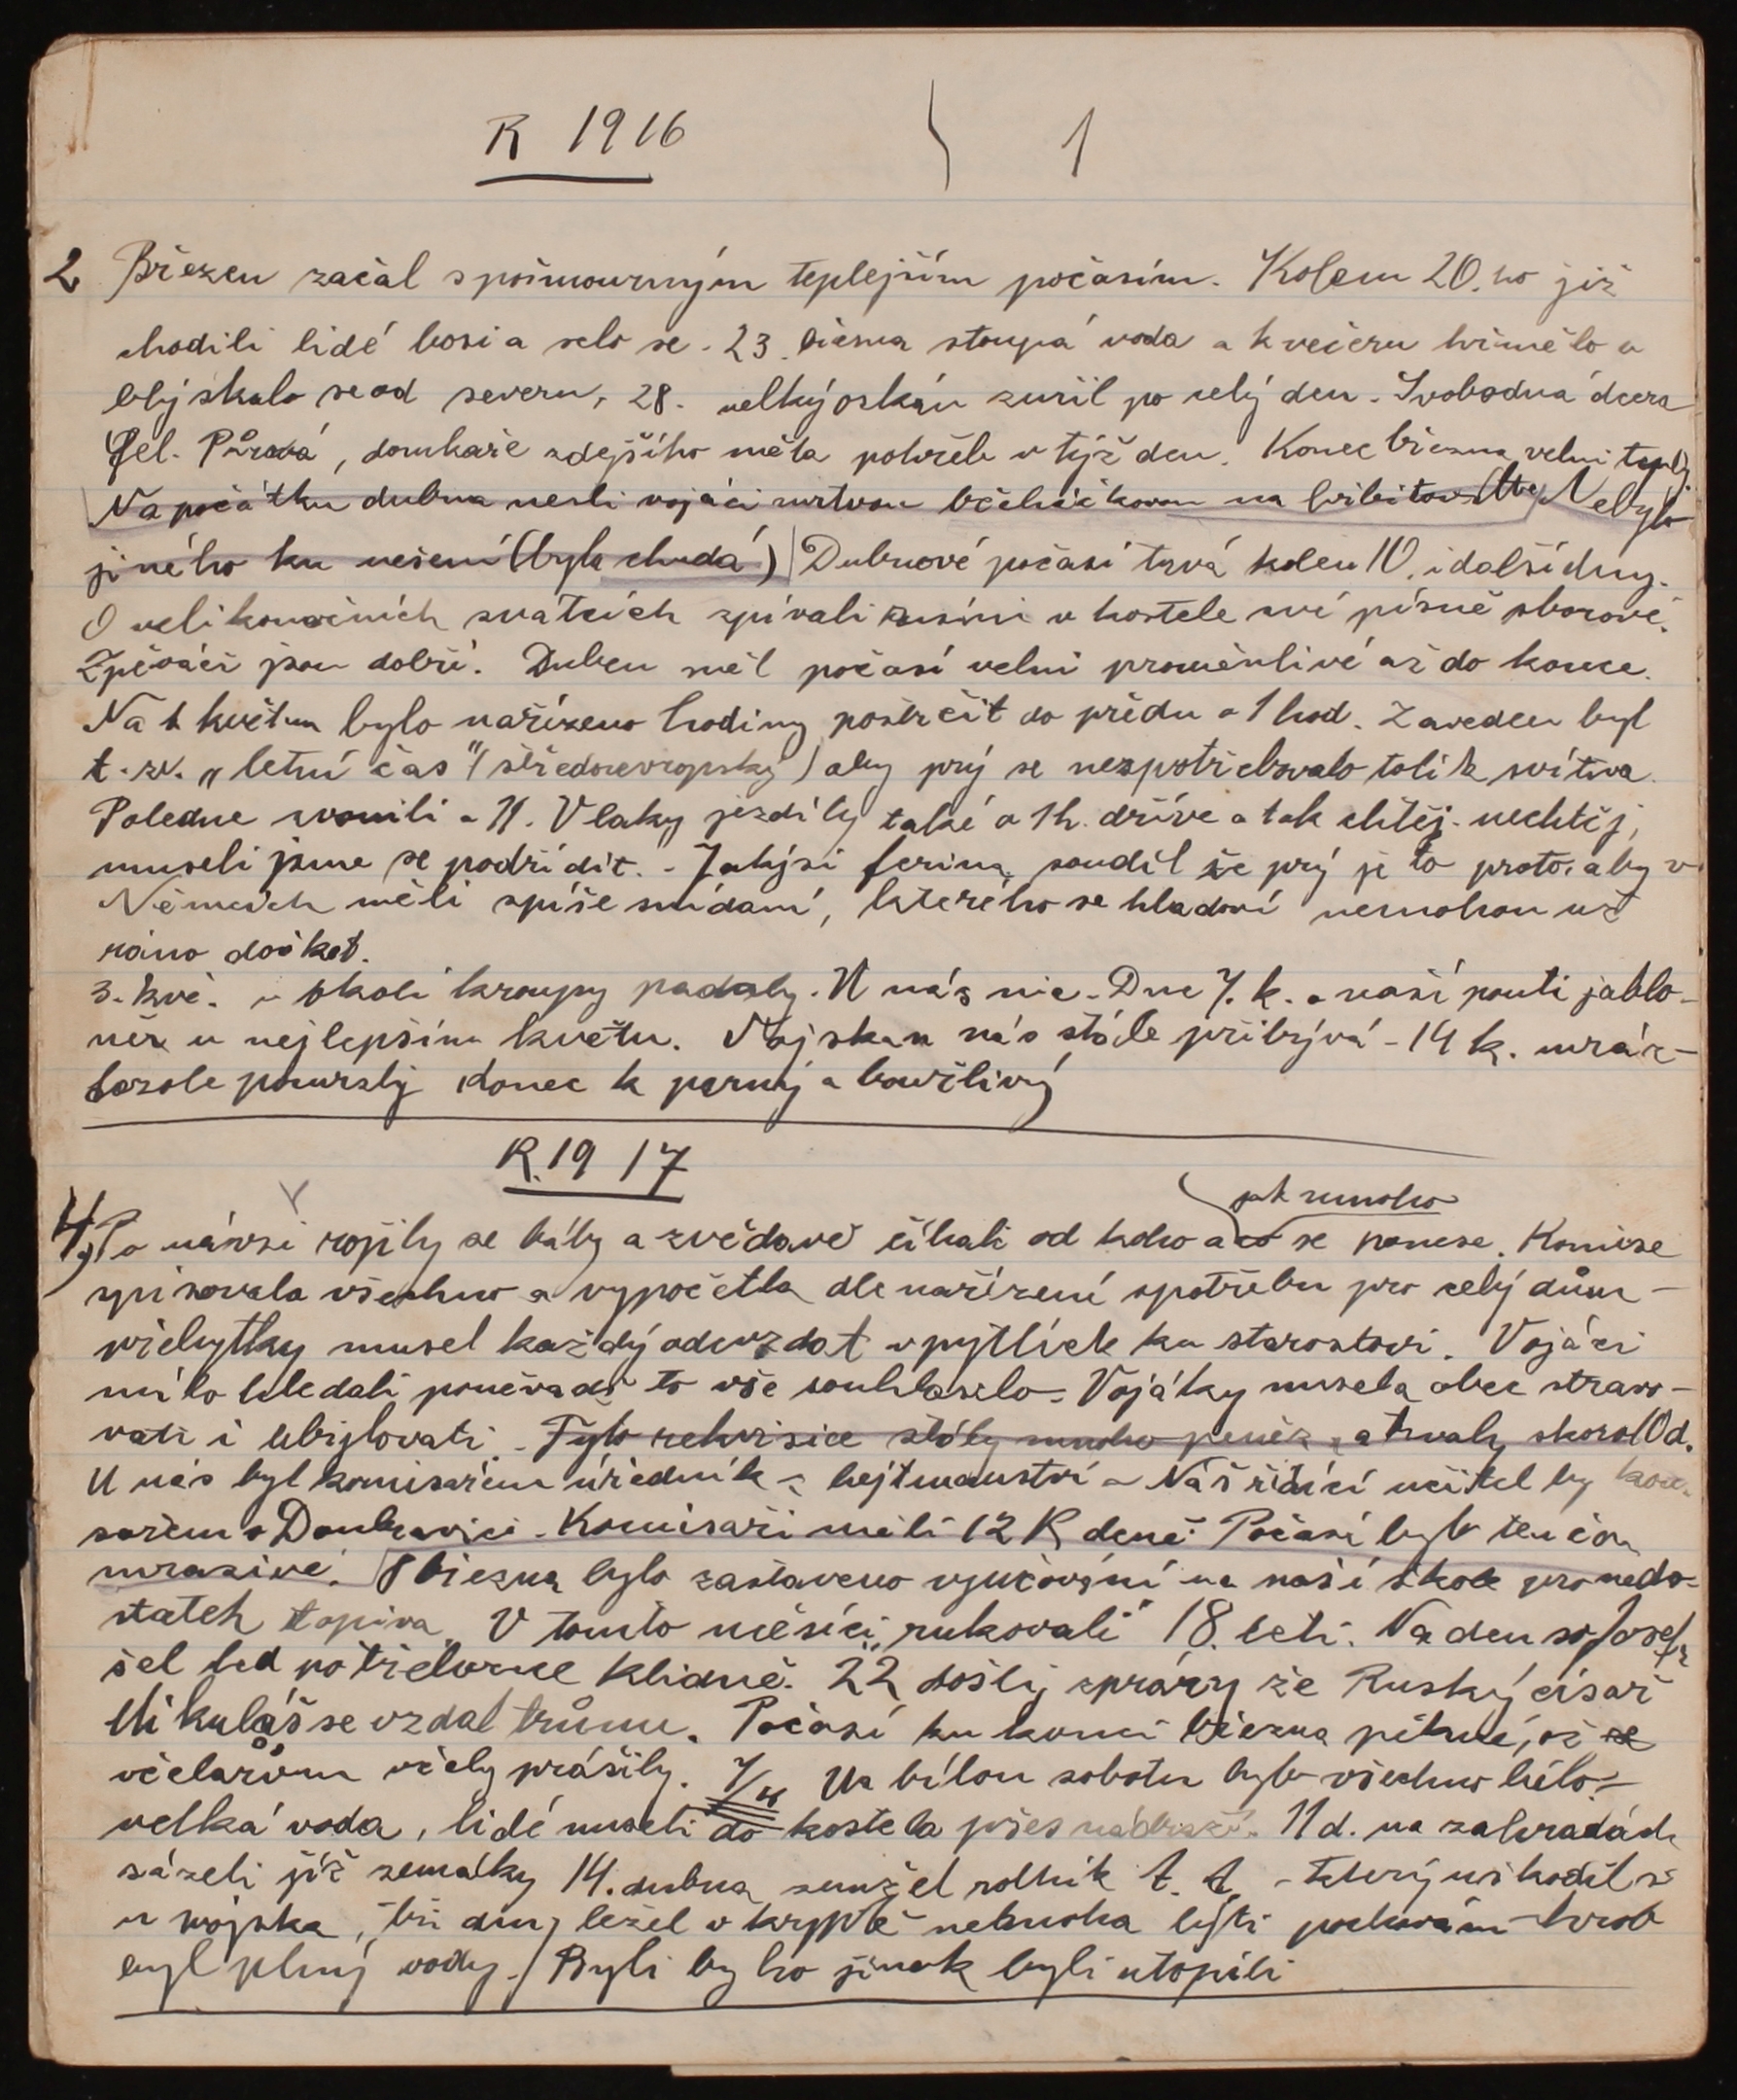 R 1916 1
2 Březen začal s pošmourným teplejším počasím. Kolem 20. ho již
chodili lidé bosi a selo se. 23. března stoupá voda a k večeru hřmělo a
blýskalo se od severu, 28. velký orkán zuřil po celý den. Svobodná dcera
Jel. , domkaře zdejšího měla pohřeb v týž den. Konec března velmi teplý
Na počátku dubna nesli vojáci mrtvou na hřbitov Nebylo
jiného ku nešení (byla chudá) Dubnové počasí trvá kolem 10. i další dny.
O velikonočních svátcích zpívali rusíni v kostele své písně sborové.
Zpěváci jsou dobří. Duben měl počasí velmi proměnlivé až do konce.
Na 1 května bylo nařízeno hodiny postrčit do předu o 1 hod. Zaveden byl
t. zv. „letní čas" (středoevropský) aby prý se nezpotřebovalo tolik svítiva.
Poledne zvonili o 11. Vlaky jezdily také o 1 h. dříve a tak chtěj. nechtěj,
museli jsme se podřídit. - Jakýsi ferina soudil že prý je to proto, aby v
Němcích měli spíše snídaní, kterého se hladoví nemohou už
ráno dočkat.
3. kvě. v okolí kroupy padaly. U nás nic. Dne 7. k. o naší pouti jablo-
ně v nejlepším květu. Vojska u nás stále přibývá - 14 k. mráz -
fazole pomrzly konec k parný a bouřlivý
R. 1917
jak mnoho
4, Po návsi rojily se báby a zvědavě číhali od koho a co se ponese. Komise
spisovala všechno a vypočetla dle nařízení spotřebu pro celý dům -
přebytky musel každý odevzdat v pytlích ku starostovi. Vojáci
málo hledali poněvadž to vše souhlaselo. Vojáky musela obec stravo-
vati i ubytovati. - Tyto rekvisice stály mnoho peněz a trvaly skoro 10 d.
U nás byl komisařem úředník z hejtmanství - Náš řídící učitel by komi-
sařem v Doubravici. Komisaři měli 12 K deně. Počasí bylo ten čas
mrazivé. 8 března bylo zastaveno vyučování na naší škole pro nedo-
statek topiva. V tomto měsíci rukovali 18. letí. Na den sv Josefa
šel led po třebovce klidně. 22 došly zprávy že Ruský císař
Mikuláš se vzdal trůnu. Počasí ku konci března pěkné, až se
včelařům včely prášily. 7/4 Na bílou sobotu bylo všechno bílo. -
velká voda, lidé museli do kostela přes nádraží. 11 d. na zahradách
sázeli již zemáky 14. dubna zemřel rolník t. t. - který uškodil si
u vojska, tři dny ležel v kryptě nemoha býti pochován - hrob
byl plný vody. / Byli by ho jinak byli utopili